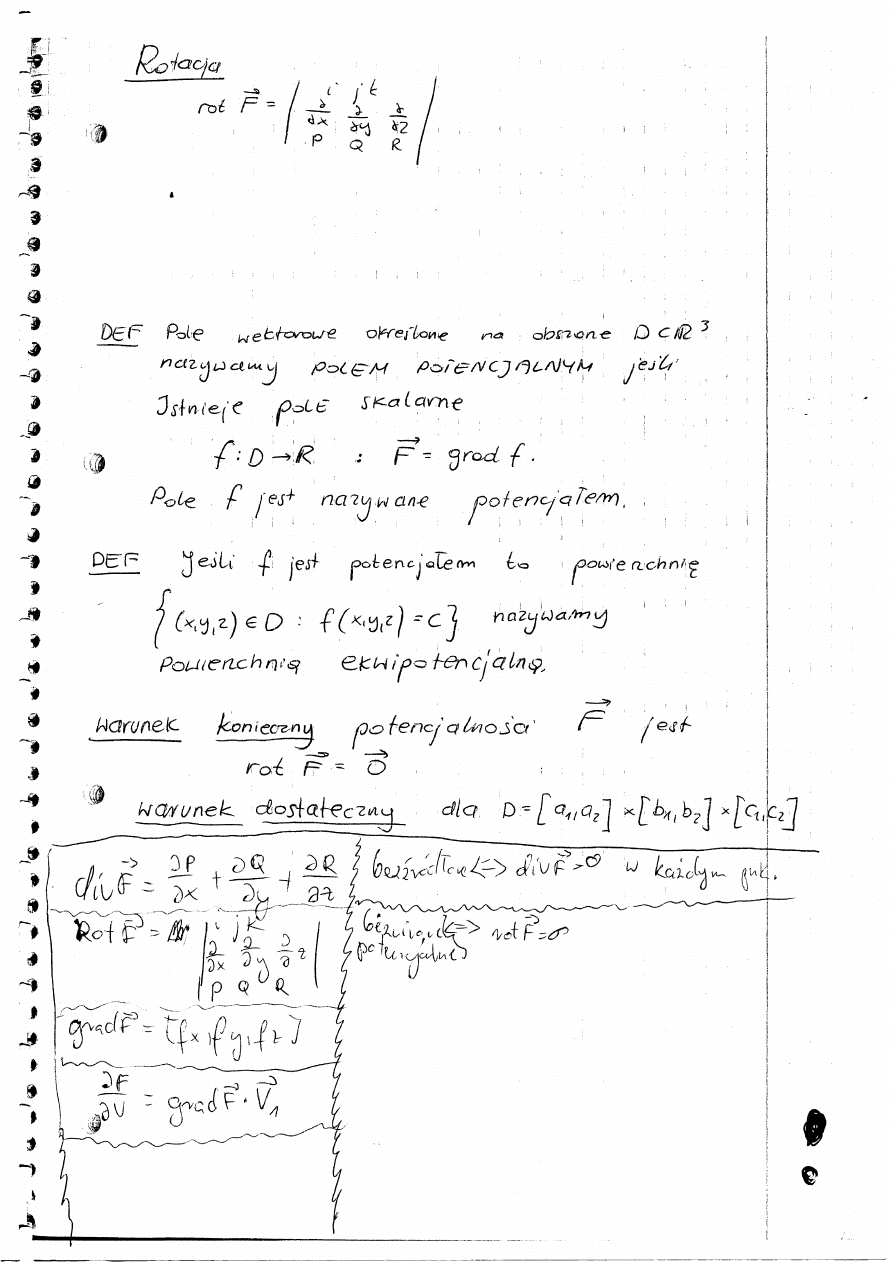 Rotacja
rot F⃗ = | i j k |
| ∂/∂x ∂/∂y ∂/∂z |
| P Q R |
DEF Pole wektorowe określone na obszarze D⊂ℝ³
nazywamy POLEM POTENCJALNYM jeśli
Istnieje POLE skalarne
f: D → R : F⃗ = grad f.
Pole f jest nazywane potencjałem.
DEF Jeśli f jest potencjałem to powierzchnię
{(x,y,z) ∈ D : f(x,y,z) = C} nazywamy
Powierzchnią ekwipotencjalną.
Warunek konieczny potencjalności F⃗ jest
rot F⃗ = O⃗
Warunek dostateczny dla D = [a₁,a₂] × [b₁,b₂] × [c₁,c₂]
div F⃗ = ∂P/∂x + ∂Q/∂y + ∂R/∂z
bezźródłowe <=> div F⃗ = 0 w każdym pkt.
Rot F⃗ = | i j k |
| ∂/∂x ∂/∂y ∂/∂z |
| P Q R |
<=> rot F⃗ = 0
potencjalne
grad F⃗ = [fx, fy, fz]
∂F/∂V = grad F⃗ · V⃗₁